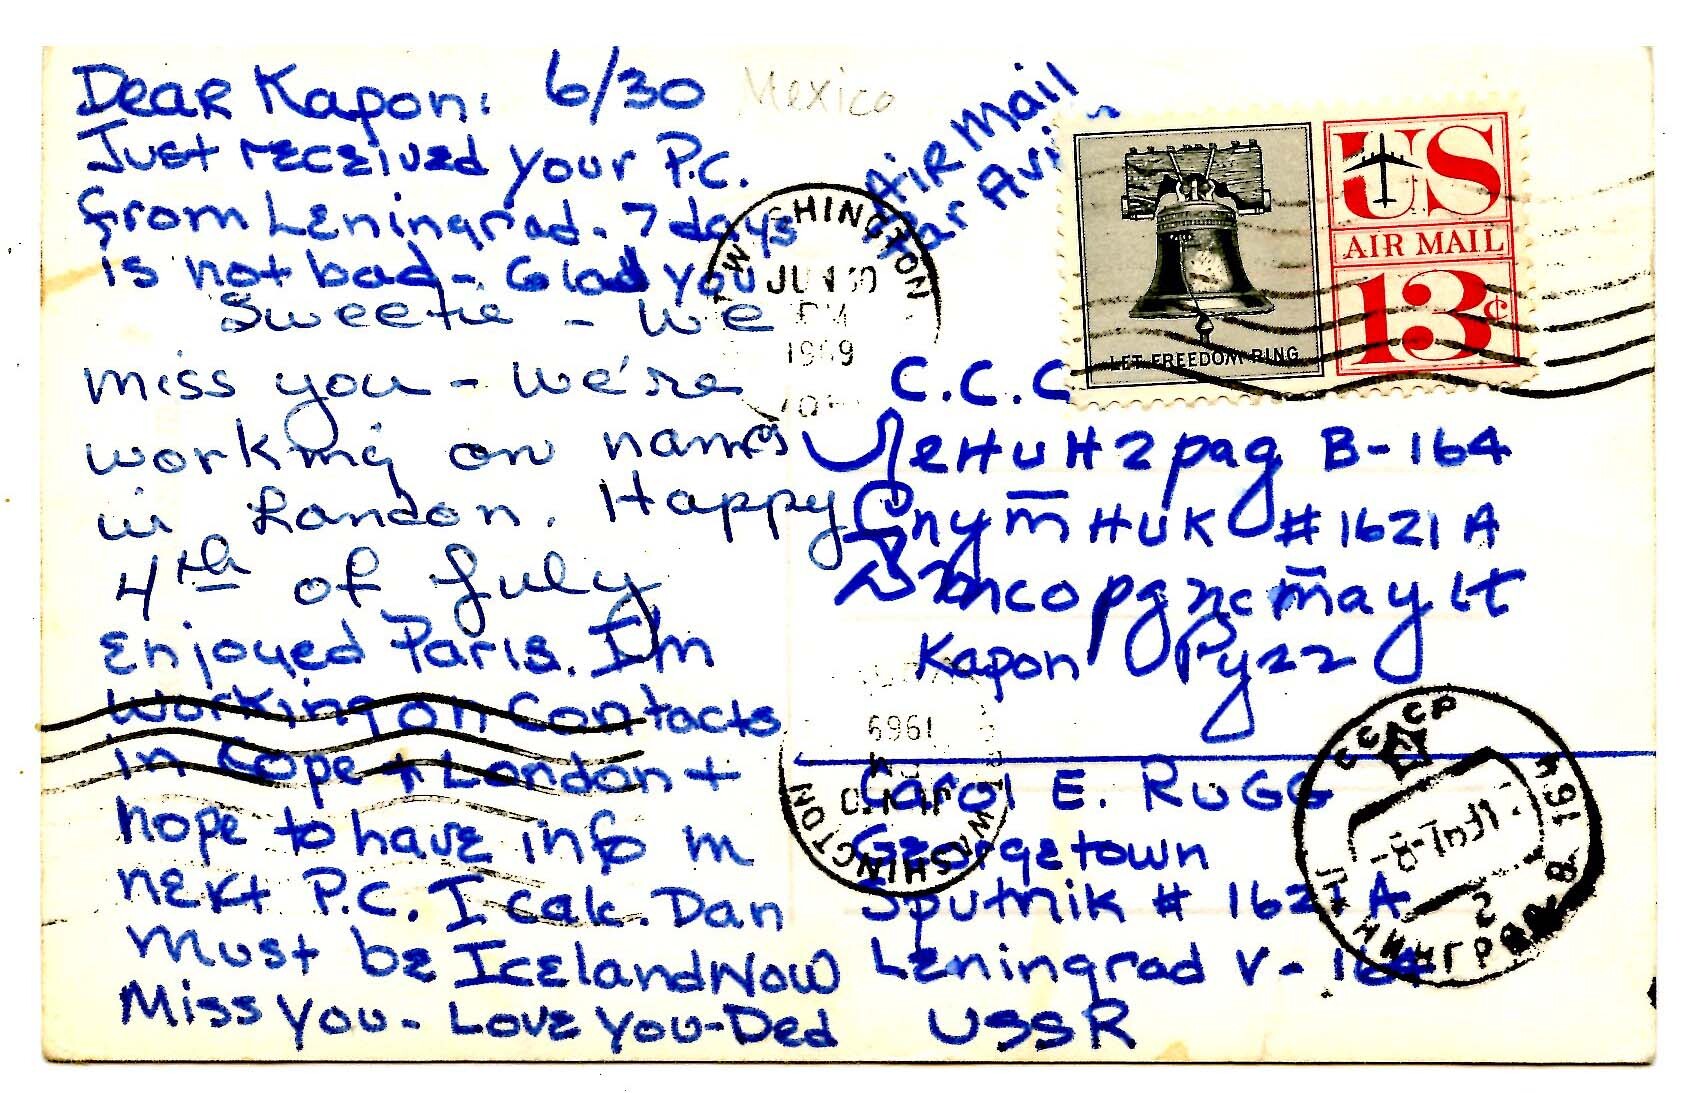 Dear Карол: 6/30
Mexico
Just received your P.C.
from Leningrad - 7 days
is not bad - Glad you
Sweetie - we
miss you - we're
working on names
in London. Happy
4th of July
enjoyed Paris. I'm
working on contacts
in Cope + London +
hope to have info in
next P.C. I calc. Dan
must be Iceland Now
Miss you - Love you - Ded
Air Mail
Par Avi
US
AIR MAIL
13¢
LET FREEDOM RING
WASHINGTON
JUN 30
PM
1969
C.C.C
Ленинград В-164
Спутник #1621 A
Карол Ругг
Carol E. RUGG
Georgetown
Sputnik # 1621 A
Leningrad V-164
USSR
WASHINGTON
1969
СССР
ЛЕНИНГРАД